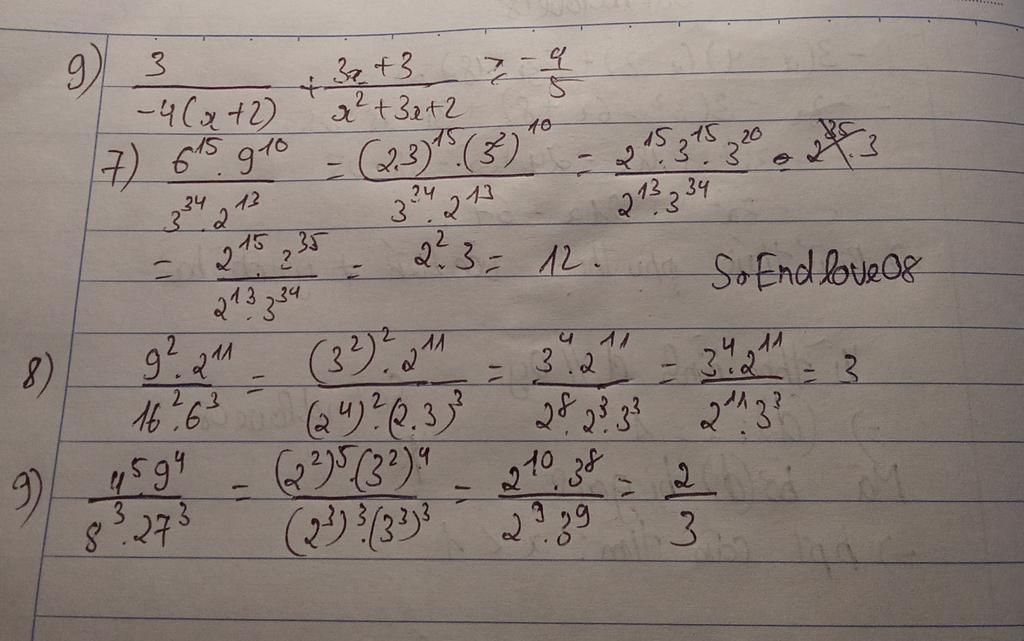 9) 3/(-4(x+2)) + (3x+3)/(x²+3x+2) ≥ -9/5
7) (6¹⁵.9¹⁰)/(3³⁴.2¹³) = ((2.3)¹⁵.(3²)¹⁰)/(3³⁴.2¹³) = (2¹⁵.3¹⁵.3²⁰)/(2¹³.3³⁴)
= (2¹⁵.3³⁵)/(2¹³.3³⁴) = 2².3 = 12. SoEndlove08
8) (9².2¹¹)/(16².6³) = ((3²)².2¹¹)/((2⁴)².(2.3)³) = (3⁴.2¹¹)/(2⁸.2³.3³) = (3⁴.2¹¹)/(2¹¹.3³) = 3
9) (4⁵.9⁴)/(8³.27³) = ((2²)⁵.(3²)⁴)/((2³)³.(3³)³) = (2¹⁰.3⁸)/(2⁹.3⁹) = 2/3